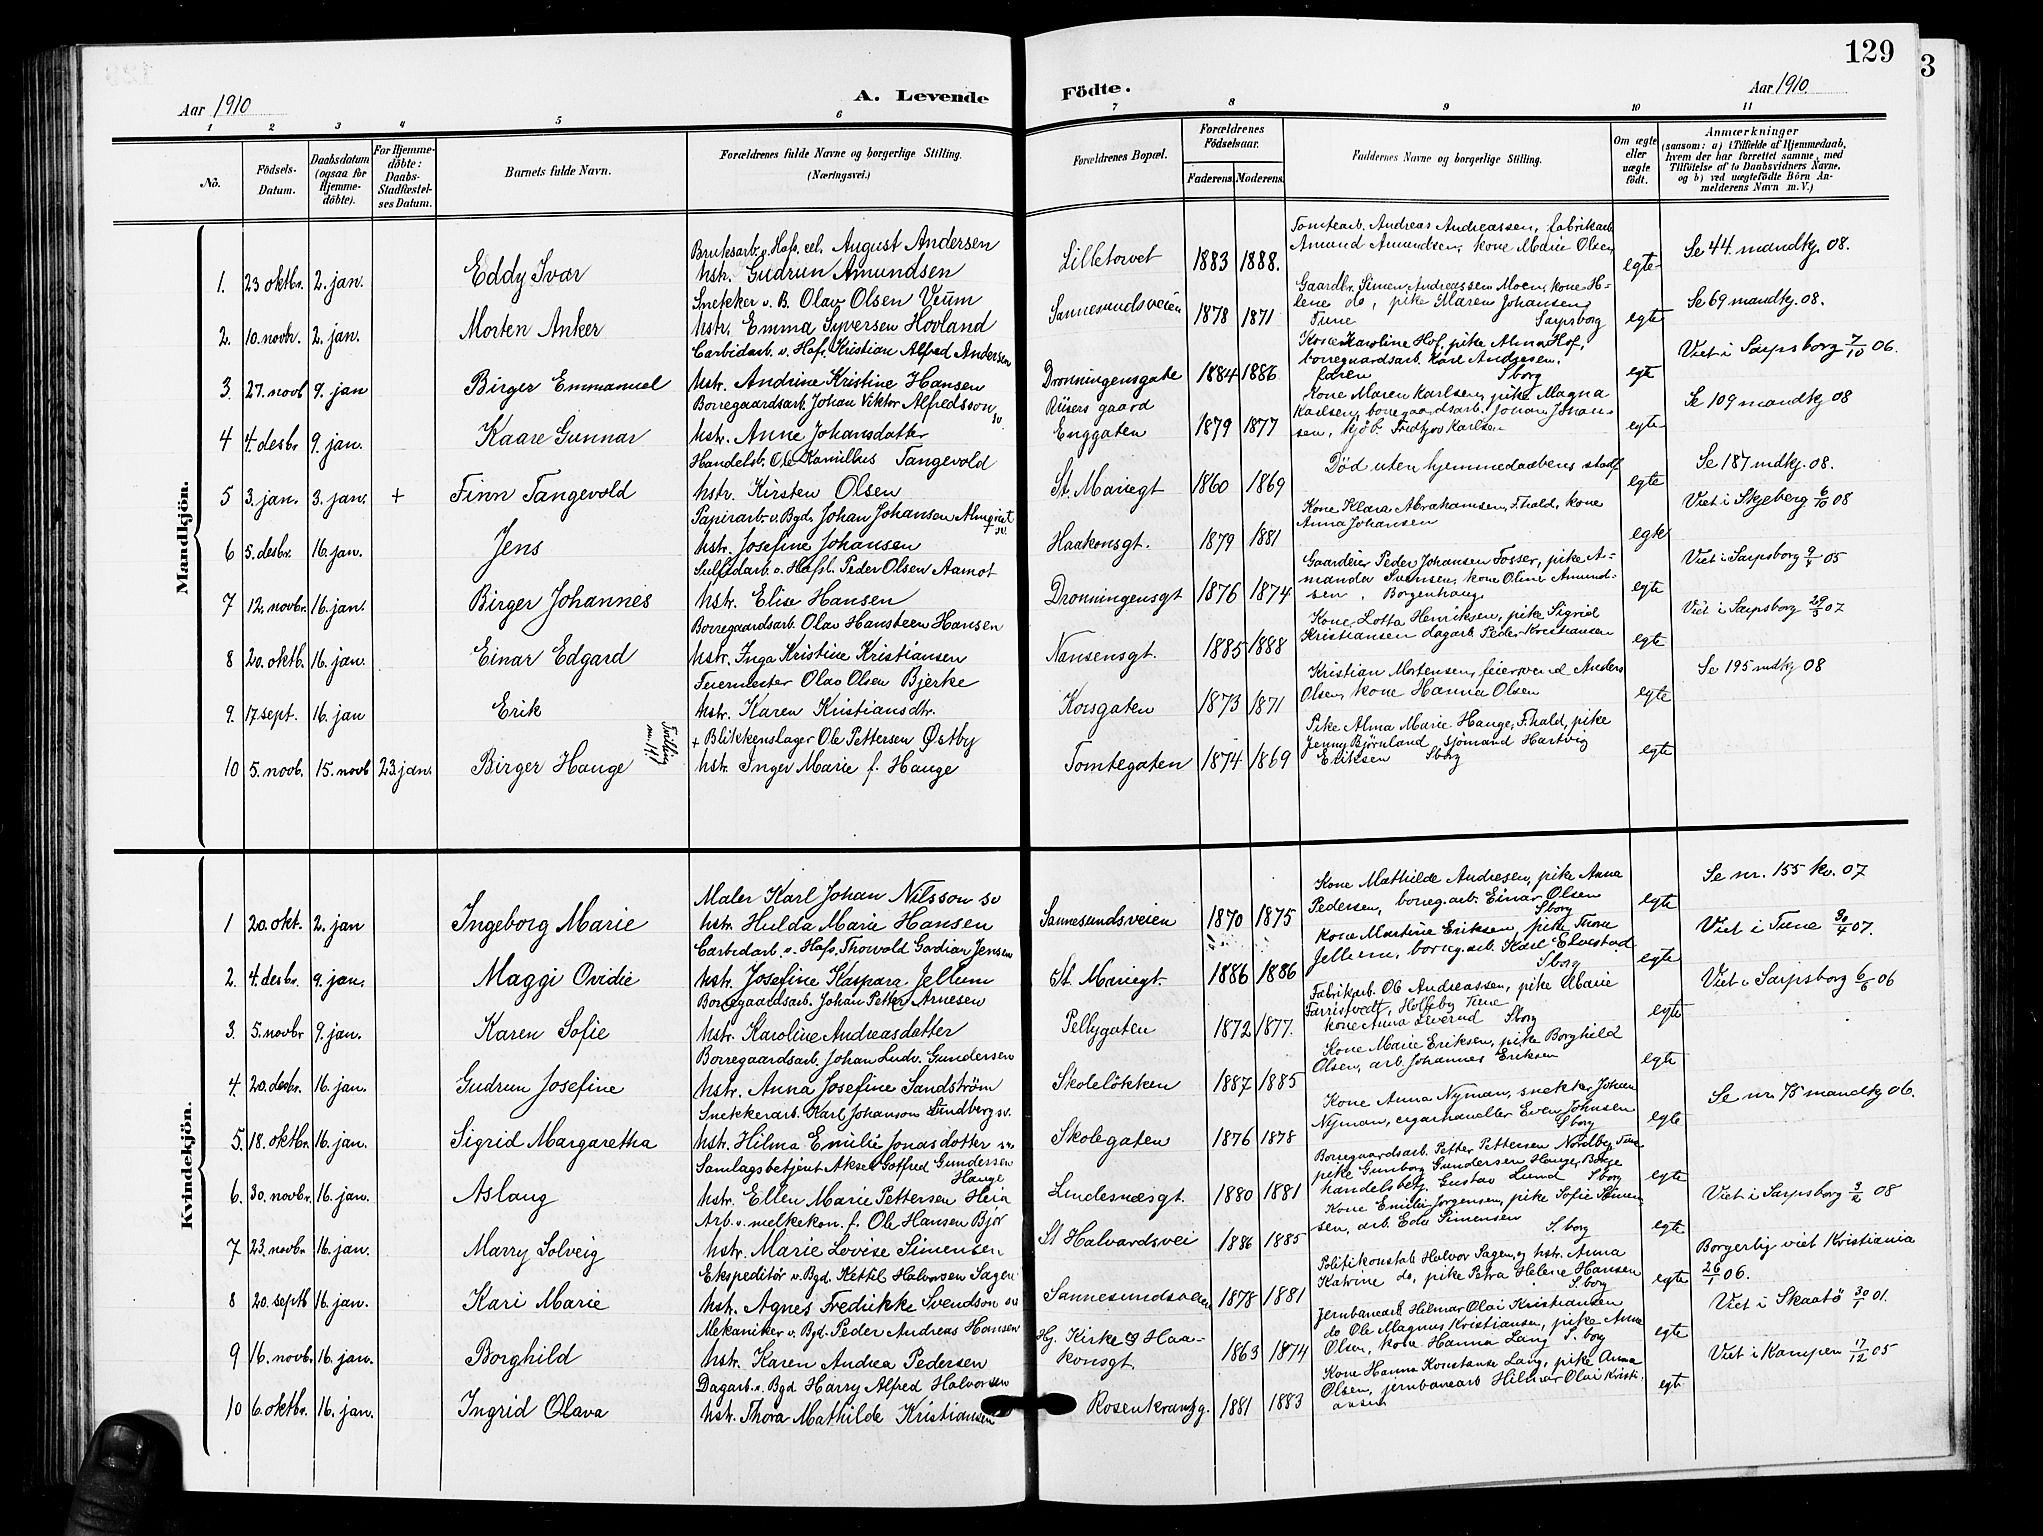 129
3
Aar 1910
A. Levende
Födte.
Aar 1910.
1 2 3 4 5 6 7 8 9 10 11
No.
Födsels-Datum.
Daabsdatum (ogsaa for Hjemme-döbte).
For Hjemme-döbte: Daabs-Stadfæstel-ses Datum.
Barnets fulde Navn.
Forældrenes fulde Navne og borgerlige Stilling. (Næringsvei.)
Forældrenes Bopæl.
Forældrenes Födselsaar.
Faderens. Moderens.
Faddernes Navne og borgerlige Stilling.
Om ægte eller uægte födt.
Anmærkninger (saasom: a) i Tilfælde af Hjemmedaab, hvem der har forrettet samme, med Tilföielse af to Daabsvidners Navne, og b) ved uægtefödte Börn An-melderens Navn m. V.)
Mandkjön.
1. 23 oktbr. 2. jan. Eddy Ivar
Bruksarb. v. Hafs. cel. August Andersen
hstr. Gudrun Amundsen
Lilletorvet 1883 1888.
Tomtearb. Andreas Andreassen, fabrikarb.
Amund Amundsen, kone Marie Olsen
egte Se 44 mandkj. 08.
2. 10. novbr. 2. jan. Morten Anker
Snekker v. B. Olav Olsen Veum
hstr. Emma Syversen Hovland
Sannesundsveien 1878 1871
Gaardbr. Simen Andreassen Moen, kone He-
lene do, pike Maren Johansen
Tune Sarpsborg
egte Se 69 mandkj. 08.
3. 27. novb 9. jan Birger Emmanuel
Carbidarb. v. Hafs. Kristian Alfred Andersen
hstr. Andrine Kristine Hansen
Dronningensgate 1884 1886
Kone Karoline Hof, pike Alma Hof,
borregaardsarb. Karl Andresen,
Sborg
egte Viet i Sarpsborg 7/10 06.
4 4. desbr 9. jan. Kaare Gunnar
Borregaardsarb. Johan Viktor Alfredsson sv.
hstr. Anne Johansdatter
Riisers gaard
Enggaten 1879 1877
Kone Maren Karlsen, pike Magna
Karlsen, borregaardsarb. Johan Johan-
sen, kjöb. Fredtjov Karlsen
egte Se 109 mandkj 08
5 3. jan. 3. jan. + Finn Tangevold
Handelsb. Ole Kamillus Tangevold
hstr. Kirsten Olsen
St. Mariegt 1860 1869
Död uten hjemmedaabens stadf
egte Se 187 mdkj. 08.
6 5. desbr. 16. jan. Jens
Papirarb. v. Bgd. Johan Johanson Almqvist sv.
hstr. Josefine Johansen
Haakonsgt. 1879 1881
Kone Klara Abrahamsen, F.hald, kone
Anna Johansen
egte Viet i Skjeberg 6/10 08
7 12. novbr. 16. jan. Birger Johannes
Sulfidarb. v. Hafsl. Peder Olsen Aamot
hstr. Elise Hansen
Dronningensgt 1876 1874
Gaardeier Peder Johansen Fosser, pike A-
manda Svensen, kone Oline Amund-
sen, Borgenhaug
egte Viet i Sarpsborg 05
8 20. oktb. 16. jan. Einar Edgard
Borregaardsarb. Olav Hansteen Hansen
hstr. Inga Kristine Kristiansen
Nansensgt. 1885 1888
Kone Lotta Henriksen, pike Sigrid
Kristiansen dagarb. Peder Kristiansen
egte Viet i Sarpsborg 29/5 07
9. 17 sept. 16. jan Erik
Feiermester Olav Olsen Bjerke
hstr. Karen Kristiansdtr.
Korsgaten 1873 1871
Kristian Mortensen, feiersvend Anders
Olsen, kone Hanna Olsen
egte Se 195 mdkj 08
10 5. novb. 15. novb 23. jan. Birger Hauge
Tvilling
+ Blikkenslager Ole Pettersen Østby
hstr. Inger Marie f. Hauge
Tomtegaten 1874 1869
Pike Alma Marie Hauge, F.hald, pike
Jenny Björnland, sjömand Hartvig
Eriksen Sborg
egte
Kvindekjön.
1 20. okt. 2. jan Ingeborg Marie
Maler Karl Johan Nilsson sv
hstr. Hulda Marie Hansen
Sannesundsveien 1870 1875
Kone Mathilde Andresen, pike Anna
Pedersen, borreg.arb. Einar Olsen
Sborg
egte Se nr. 155 kv. 07
2. 4. desbr. 9. jan. Maggi Ovidie
Carbidarb. v. Hafs. Thorvald Gordian Jensen
hstr. Josefine Kaspara Jellum
St. Mariegt. 1886 1886
Kone Martine Eriksen, pike Thora
Jellum, borreg.arb. Karl Elvestad
Sborg
egte Viet i Tune 30/4 07.
3. 5. novbr 9. jan. Karen Sofie
Borregaardsarb. Johan Petter Arnesen
hstr. Karoline Andreasdatter
Pellygaten 1872 1877.
Fabrikarb. Ole Andreassen, pike Marie
Farristvedt, Holleby Tune
kone Anna Leverud Sborg
egte Viet i Sarpsborg 6/6 06
4. 20. desbr. 16. jan. Gudrun Josefine
Borregaardsarb. Johan Ludv. Gundersen
hstr. Anna Josefine Sandström
Skolelökken 1887 1885
Kone Marie Eriksen, pike Borghild
Olsen, arb. Johannes Eriksen
egte
5. 18. oktbr. 16. jan. Sigrid Margaretha
Snekkerarb. Karl Johanson Lindberg sv.
hstr. Hilma Emilie Jonasdotter sv.
Skolegaten 1876 1878
Kone Anna Nyman, snekker Johan
Nyman, cigarhandler Even Johnsen
Sborg
egte Se nr. 75 mandkj 06.
6. 30. novbr. 16. jan. Aslaug
Samlagsbetjent Aksel Gotfred Gundersen
Hauge
hstr. Ellen Marie Pettersen Heia
Lindesnæsgt. 1880 1881
Borregaardsarb. Petter Pettersen Nordby, Tune
pike Gunborg Gundersen Hauge, Borge
handelsbetj. Gustav Lund Sborg
egte
7 23. novbr 16. jan. Marry Solveig
Arb. v. melkekon. f. Ole Hansen Bjør
hstr. Marie Lovise Simensen
St Halvardsvei 1886 1885
Kone Emilie Jørgensen, pike Sofie Simen-
sen, arb. Edv. Simensen S.borg
egte Viet i Sarpsborg 3/6 08
8 20. septb 16. jan. Kari Marie
Ekspeditör v. Bgd. Kettil Halvorsen Sagen
hstr. Agnes Fredrikke Svendson sv
Sannesundsveien 1878 1881
Politikonstab. Halvor Sagen og hstr. Anna
Katrine do, pike Petra Helene Hansen
S.borg
egte Borgerlig viet Kristiania
26/1 06.
9 16. novbr. 16. jan. Borghild
Mekaniker v. Bgd. Peder Andreas Hansen
hstr. Karen Andrea Pedersen
Hj. Kirke og Haa-
konsgt. 1863 1874
Jernbanearb. Hilmar Olai Kristiansen
do Ole Magnus Kristiansen, pike Anna
Olsen, kone Hanna Lang S.borg
egte Viet i Skaatö 30/1 01.
10 6. oktbr. 16. jan. Ingrid Olava
Dagarb. v. Bgd Harry Alfred Halvorsen
hstr. Thora Mathilde Kristiansen
Rosenkrantzg. 1881 1883
Kone Hanna Konstanse Lang, pike Anna
Olsen, jernbanearb Hilmar Olai Kristi-
ansen
egte Viet i Kampen 17/12 05